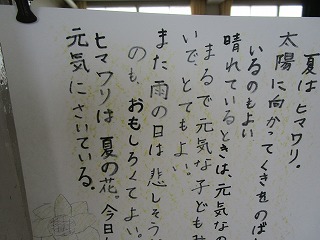 夏はヒマワリ。
太陽に向かってくきをのば
いるのもよい
晴れているときは、元気なの
まるで元気な子ども
いで、とてもよい。
また、雨の日は悲しそう
のも、おもしろくてよい。
ヒマワリは夏の花。今日
元気にさいている。